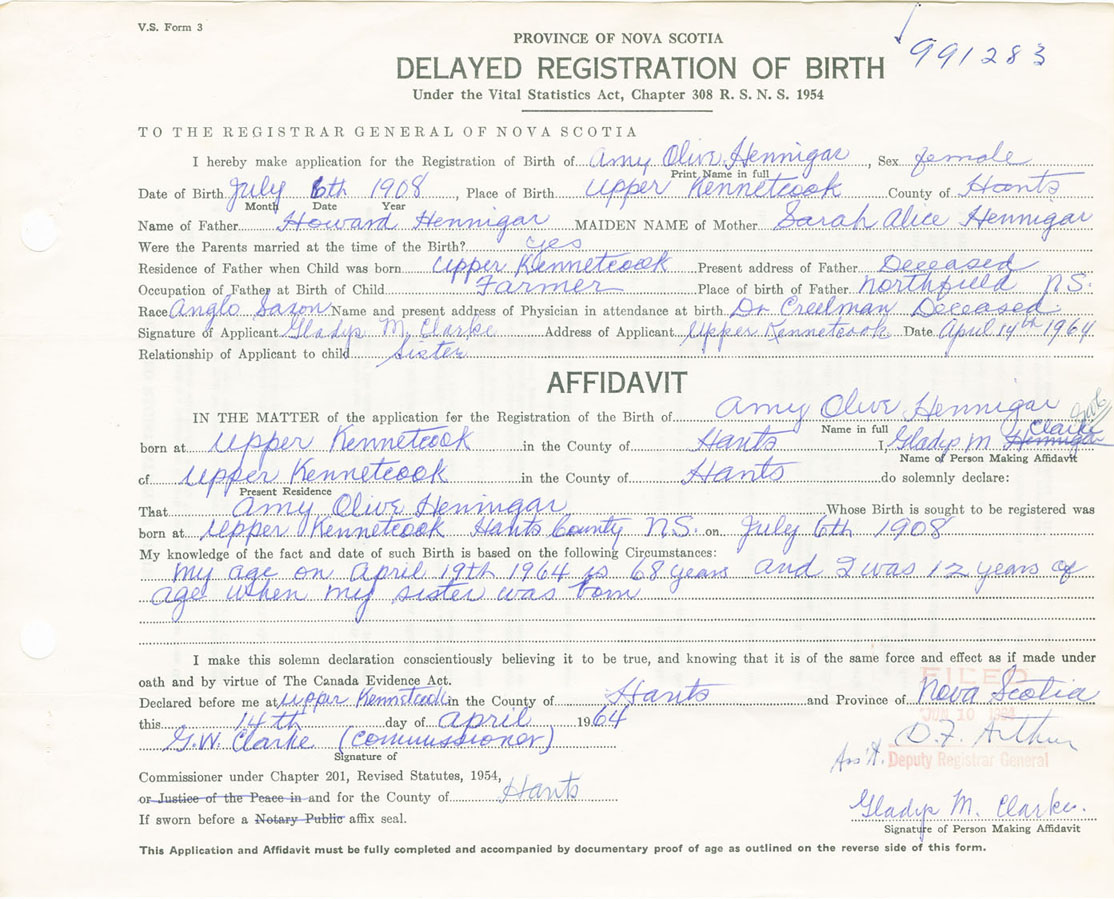 V.S. Form 3
991283
PROVINCE OF NOVA SCOTIA
DELAYED REGISTRATION OF BIRTH
Under the Vital Statistics Act, Chapter 308 R. S. N. S. 1954
TO THE REGISTRAR GENERAL OF NOVA SCOTIA
I hereby make application for the Registration of Birth of Amy Olive Hennigar, Sex female
Print Name in full
Date of Birth July 6th 1908, Place of Birth Upper Kennetcook County of Hants
Month Date Year
Name of Father Howard Hennigar MAIDEN NAME of Mother Sarah Alice Hennigar
Were the Parents married at the time of the Birth? yes
Residence of Father when Child was born Upper Kennetcook Present address of Father Deceased
Occupation of Father at Birth of Child Farmer Place of birth of Father Northfield N.S.
Race Anglo Saxon Name and present address of Physician in attendance at birth Dr Creelman Deceased.
Signature of Applicant Gladys M. Clarke Address of Applicant Upper Kennetcook Date April 14th 1964
Relationship of Applicant to child Sister
AFFIDAVIT
IN THE MATTER of the application for the Registration of the Birth of Amy Olive Hennigar
Name in full
born at Upper Kennetcook in the County of Hants I, Gladys M. Hennigar Clarke
Name of Person Making Affidavit
of Upper Kennetcook in the County of Hants do solemnly declare:
Present Residence
That Amy Olive Hennigar Whose Birth is sought to be registered was
born at Upper Kennetcook Hants County N.S. on July 6th 1908
My knowledge of the fact and date of such Birth is based on the following Circumstances:
My age on April 19th 1964 is 68 years and I was 12 years of
age when my sister was born
I make this solemn declaration conscientiously believing it to be true, and knowing that it is of the same force and effect as if made under
oath and by virtue of The Canada Evidence Act.
FILED
Declared before me at Upper Kennetcook in the County of Hants and Province of Nova Scotia
this 14th day of April 1964
JUN 10 1964
G.W. Clarke (Commissioner)
D.F. Arthur
Signature of
Ass't. Deputy Registrar General
Commissioner under Chapter 201, Revised Statutes, 1954,
or Justice of the Peace in and for the County of Hants
Gladys M. Clarke.
If sworn before a Notary Public affix seal.
Signature of Person Making Affidavit
This Application and Affidavit must be fully completed and accompanied by documentary proof of age as outlined on the reverse side of this form.